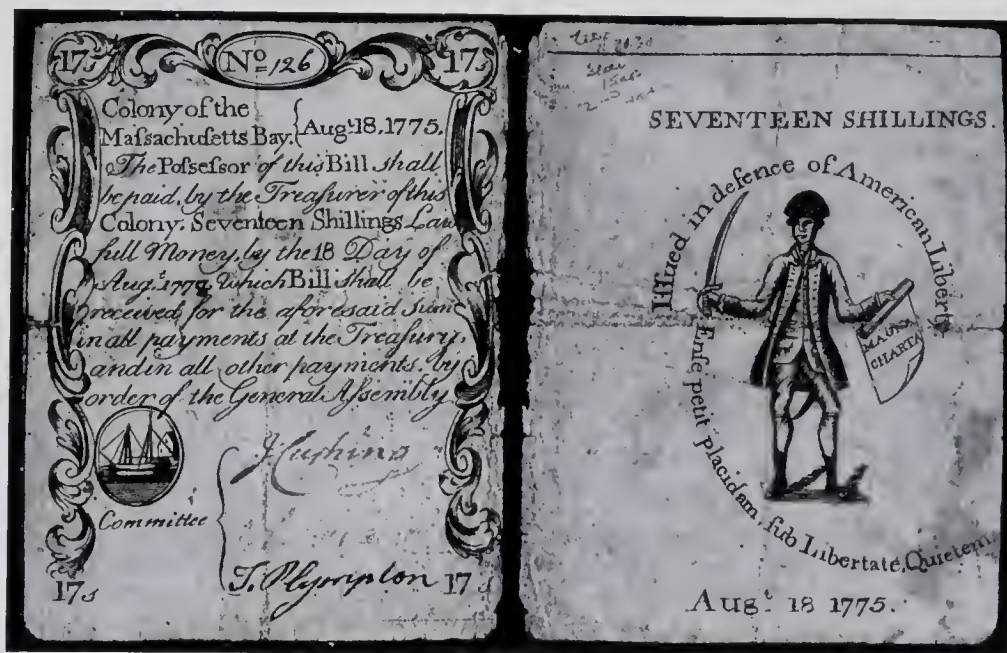 17s Nº 126 17s
Colony of the
Maſsachuſetts Bay. { Augt. 18, 1775.
The Poſseſsor of this Bill shall
be paid, by the Treaſurer of this
Colony. Seventeen Shillings Law
full Money, by the 18 Day of
Augt. Which Bill shall be
received for the aforesaid sum
in all payments at the Treaſury,
and in all other payments by
order of the General Aſsembly
J Cushing
Committee
T. Plympton
17s 17s
SEVENTEEN SHILLINGS.
Iſſued in defence of American Liberty
MAGNA
CHARTA
Enſe petit placidam, ſub Libertate, Quietem
Augt. 18 1775.